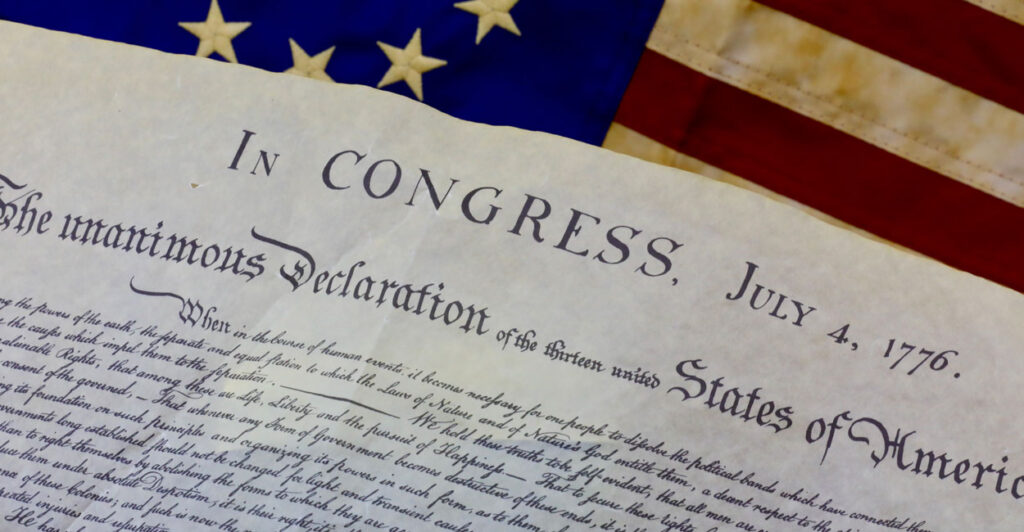 In CONGRESS, July 4, 1776.
The unanimous Declaration of the thirteen united States of Americ
When in the Course of human events, it becomes necessary for one people to dissolve the political bands which have connected them
ng the powers of the earth, the separate and equal station to which the Laws of Nature and of Nature's God entitle them, a decent respect to the
the causes which impel them to the separation. — We hold these truths to be self-evident, that all men are
alienable Rights, that among these are Life, Liberty and the pursuit of Happiness — That to secure these rights,
consent of the governed, — That whenever any Form of Government becomes destructive of these ends, it is
ng its foundation on such principles and organizing its powers in such form, as to them
vernments long established should not be changed for light and transient caus
than to right themselves by abolishing the forms to which they are
duce them under absolute Despotism, it is their right, it is
ance of these Colonies; and such is now the
peated injuries and usurpation
He has